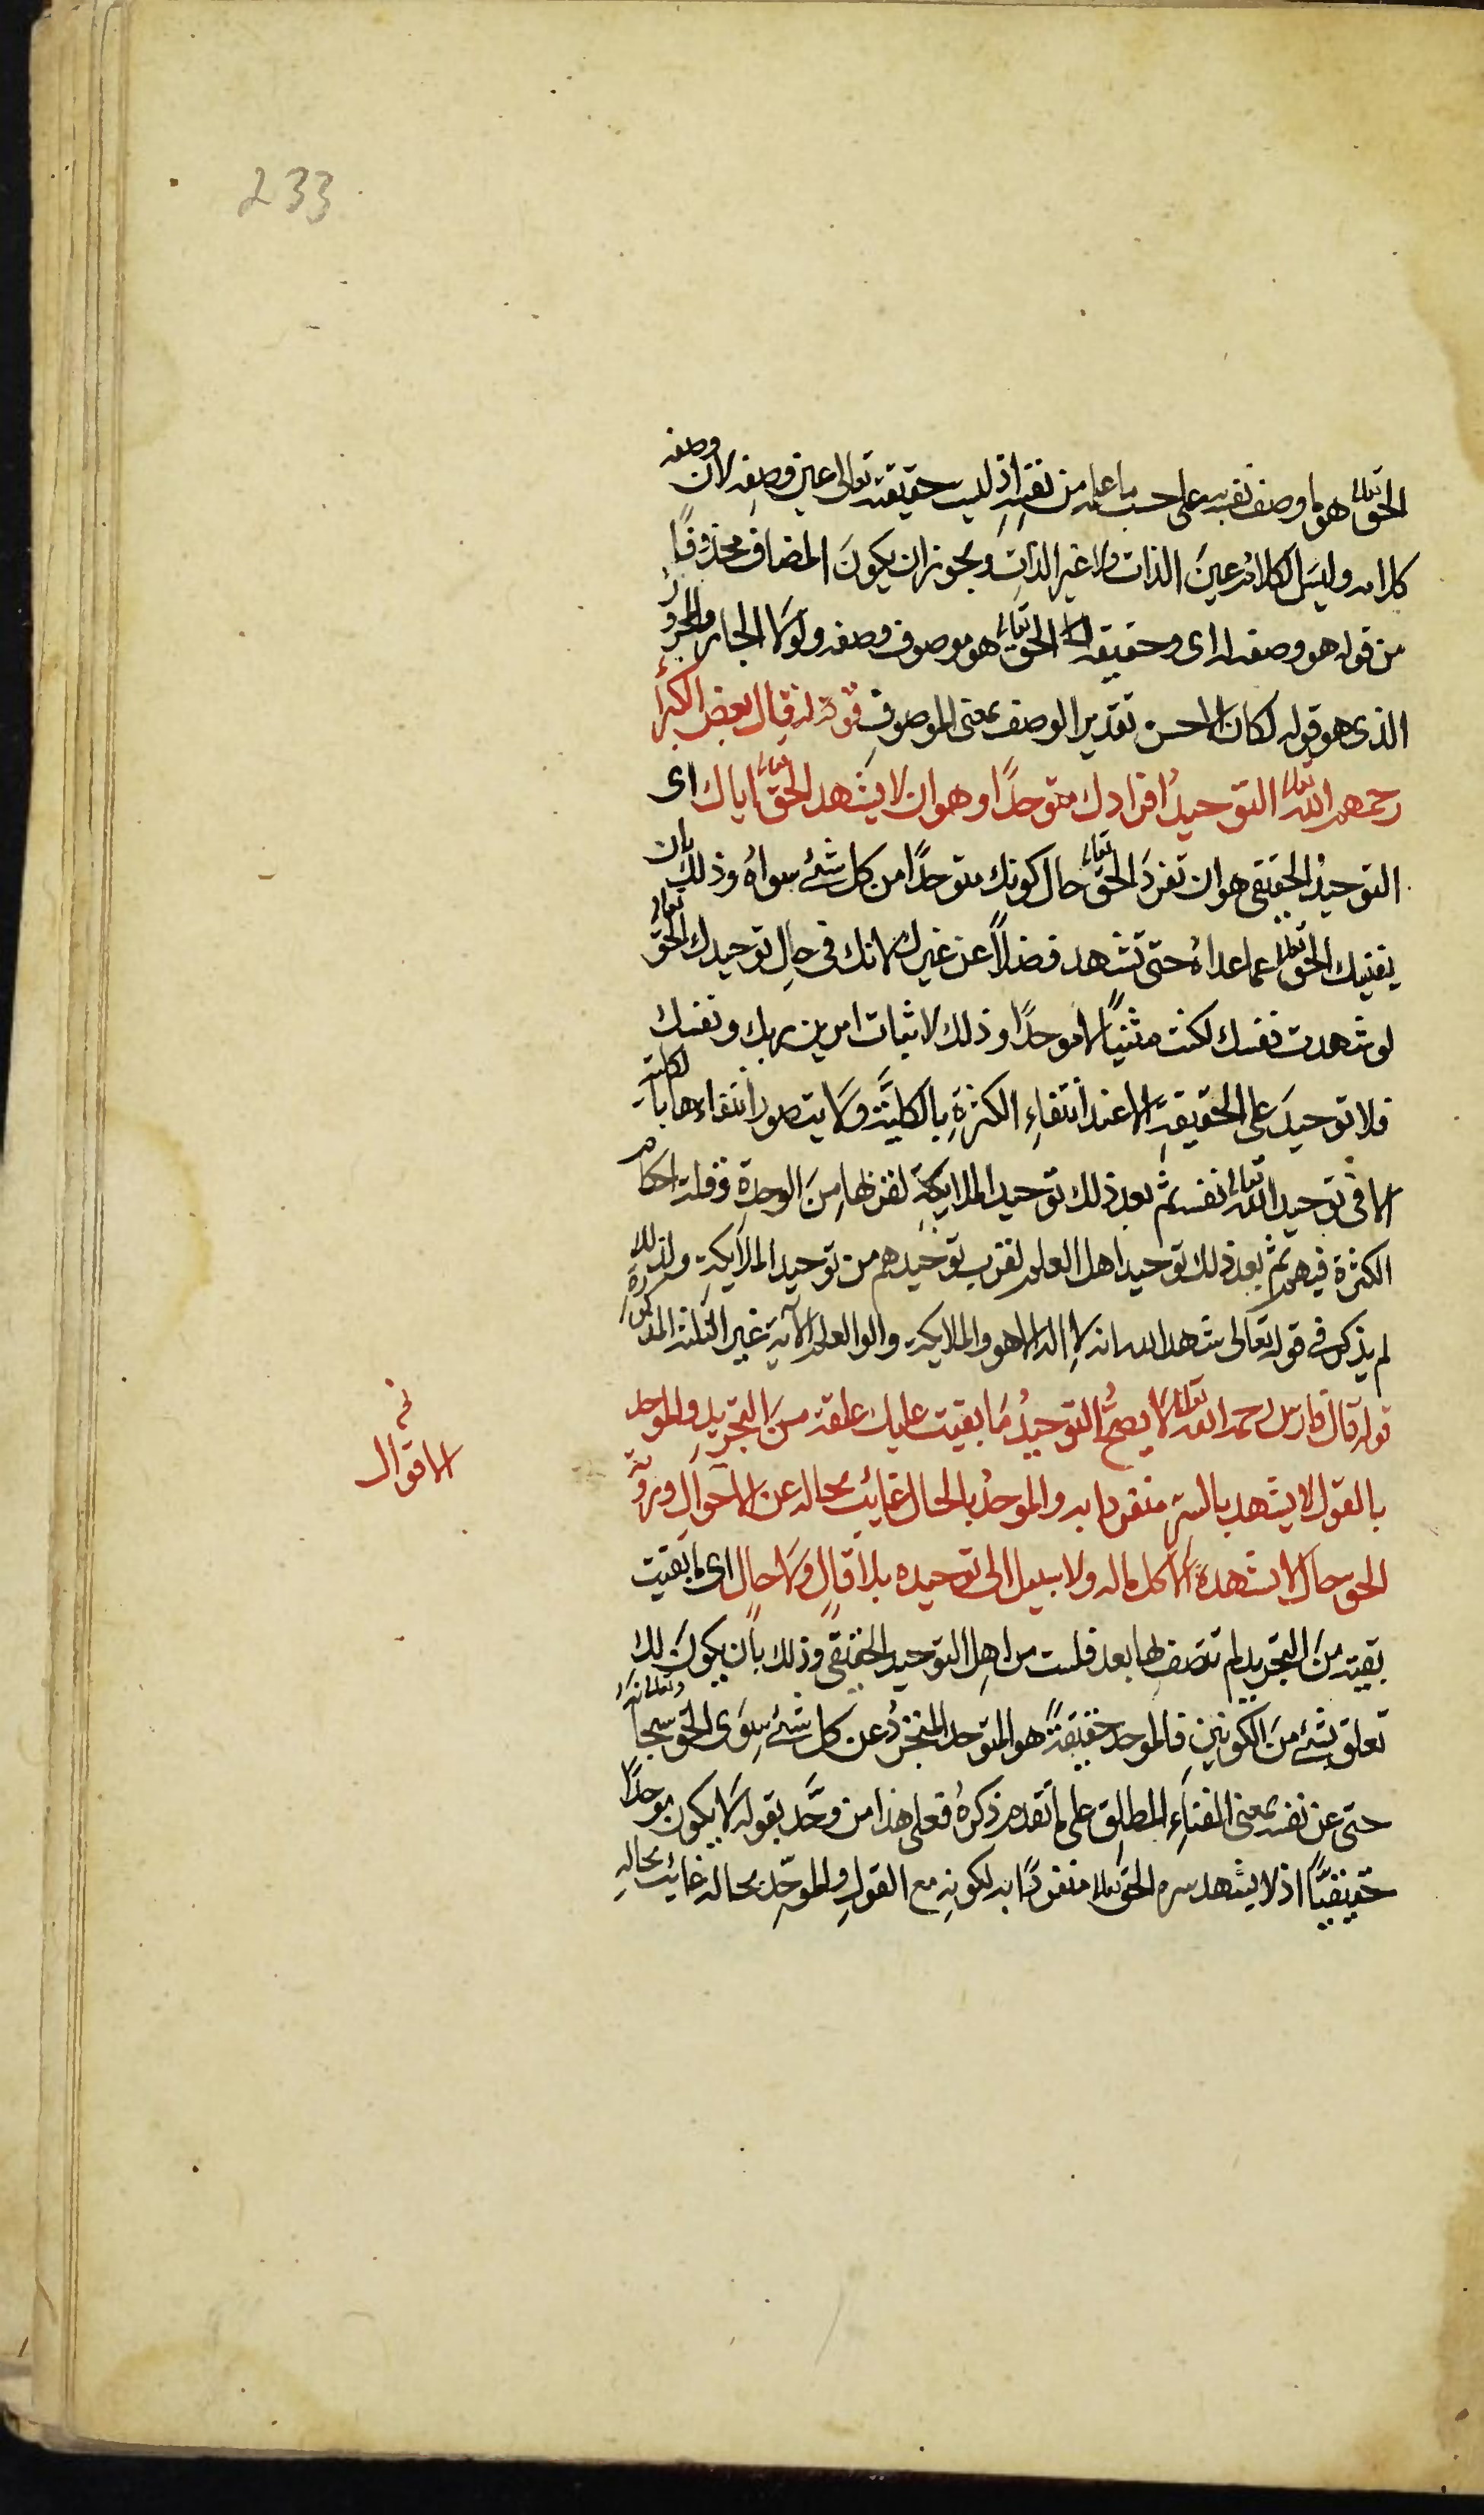 233
الحق تعالى هو ما وصف نفسه على حسب ما علمه من نفسه اذ ليست حقيقته تعالى عين وصفه لان وصفه
كلامه وليس الكلام عين الذات ولا غير الذات ويجوز ان يكون المضاف محذوفا
من قوله هو وصفه له اى وحقيقة الحق تعالى هو موصوف وصفه ولولا الجار والمجرور
الذى هو قوله لكان الاحسن تقدير الوصف بمعنى الموصوف قوله قال بعض الكبراء
رحمهم الله تعالى التوحيد افرادك متوحدا وهو ان لا يشهد الحق تعالى اياك اى
التوحيد الحقيقى هو ان تفرد الحق تعالى حال كونك متوحدا من كل شئ سواه وذلك بان
يفنيك الحق تعالى عما عداه حتى تشهد فضلا عن غيرك لانك فى حال توحيدك الحق تعالى
لو شهدت نفسك لكنت مثنيا لا موحدا وذلك لاثبات امرين ربك ونفسك
فلا توحيد على الحقيقة الا عند انتفاء الكثرة بالكلية ولا يتصور انتفاءها بالكلية
الا فى توحيد الله تعالى نفسه ثم بعد ذلك توحيد الملايكة لقربها من الوحدة وقلة احكام
الكثرة فيهم ثم بعد ذلك توحيد اهل العلم لقرب توحيدهم من توحيد الملايكة ولذلك
لم يذكر فى قوله تعالى شهد الله انه لا اله الا هو والملايكة والوا العلم الآية غير الثلثة المذكورة
قوله قال فارس رحمه الله تعالى لا يصح التوحيد ما بقيت عليك علقة من التجريد والموحد
بالقول لا يشهد بالسر منفردا به والموحد بالحال غائب بحاله عن الاحوال ورؤية
الاقوال
الحق حال لا يشهده الا كل ماله ولا سبيل الى توحيده بلا قال ولا حال اى ما بقيت
بقية من التجريد لم تتصف بها بعد فلست من اهل التوحيد الحقيقى وذلك بان يكون لك
تعلق بشئ من الكونين فالموحد حقيقة هو المتوحد المتجرد عن كل شئ سوى الحق سبحانه وتعالى
حتى عن نفسه بمعنى الفناء المطلق على ما تقدم ذكره فعلى هذا من وحد بقوله لا يكون موحدا
حقيقيا اذ لا يشهد سره الحق تعالى منفردا به لكونه مع القول والموحد بحاله غائب بحاله